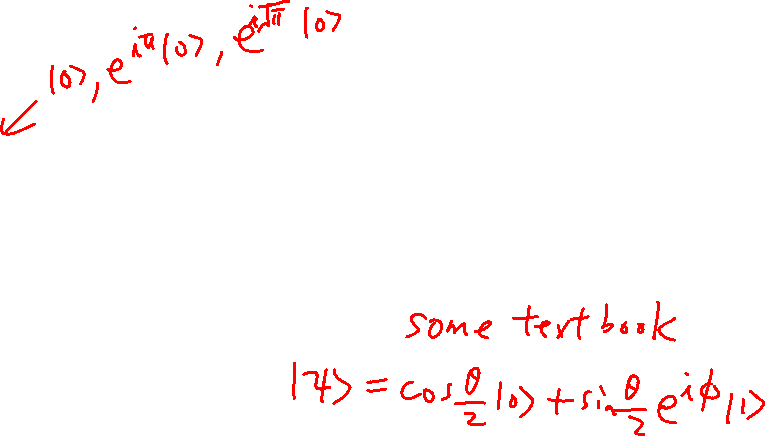 |0⟩, e^{iπ}|0⟩, e^{i√π}|0⟩
some textbook
|ψ⟩ = cos θ/2 |0⟩ + sin θ/2 e^{iϕ} |1⟩